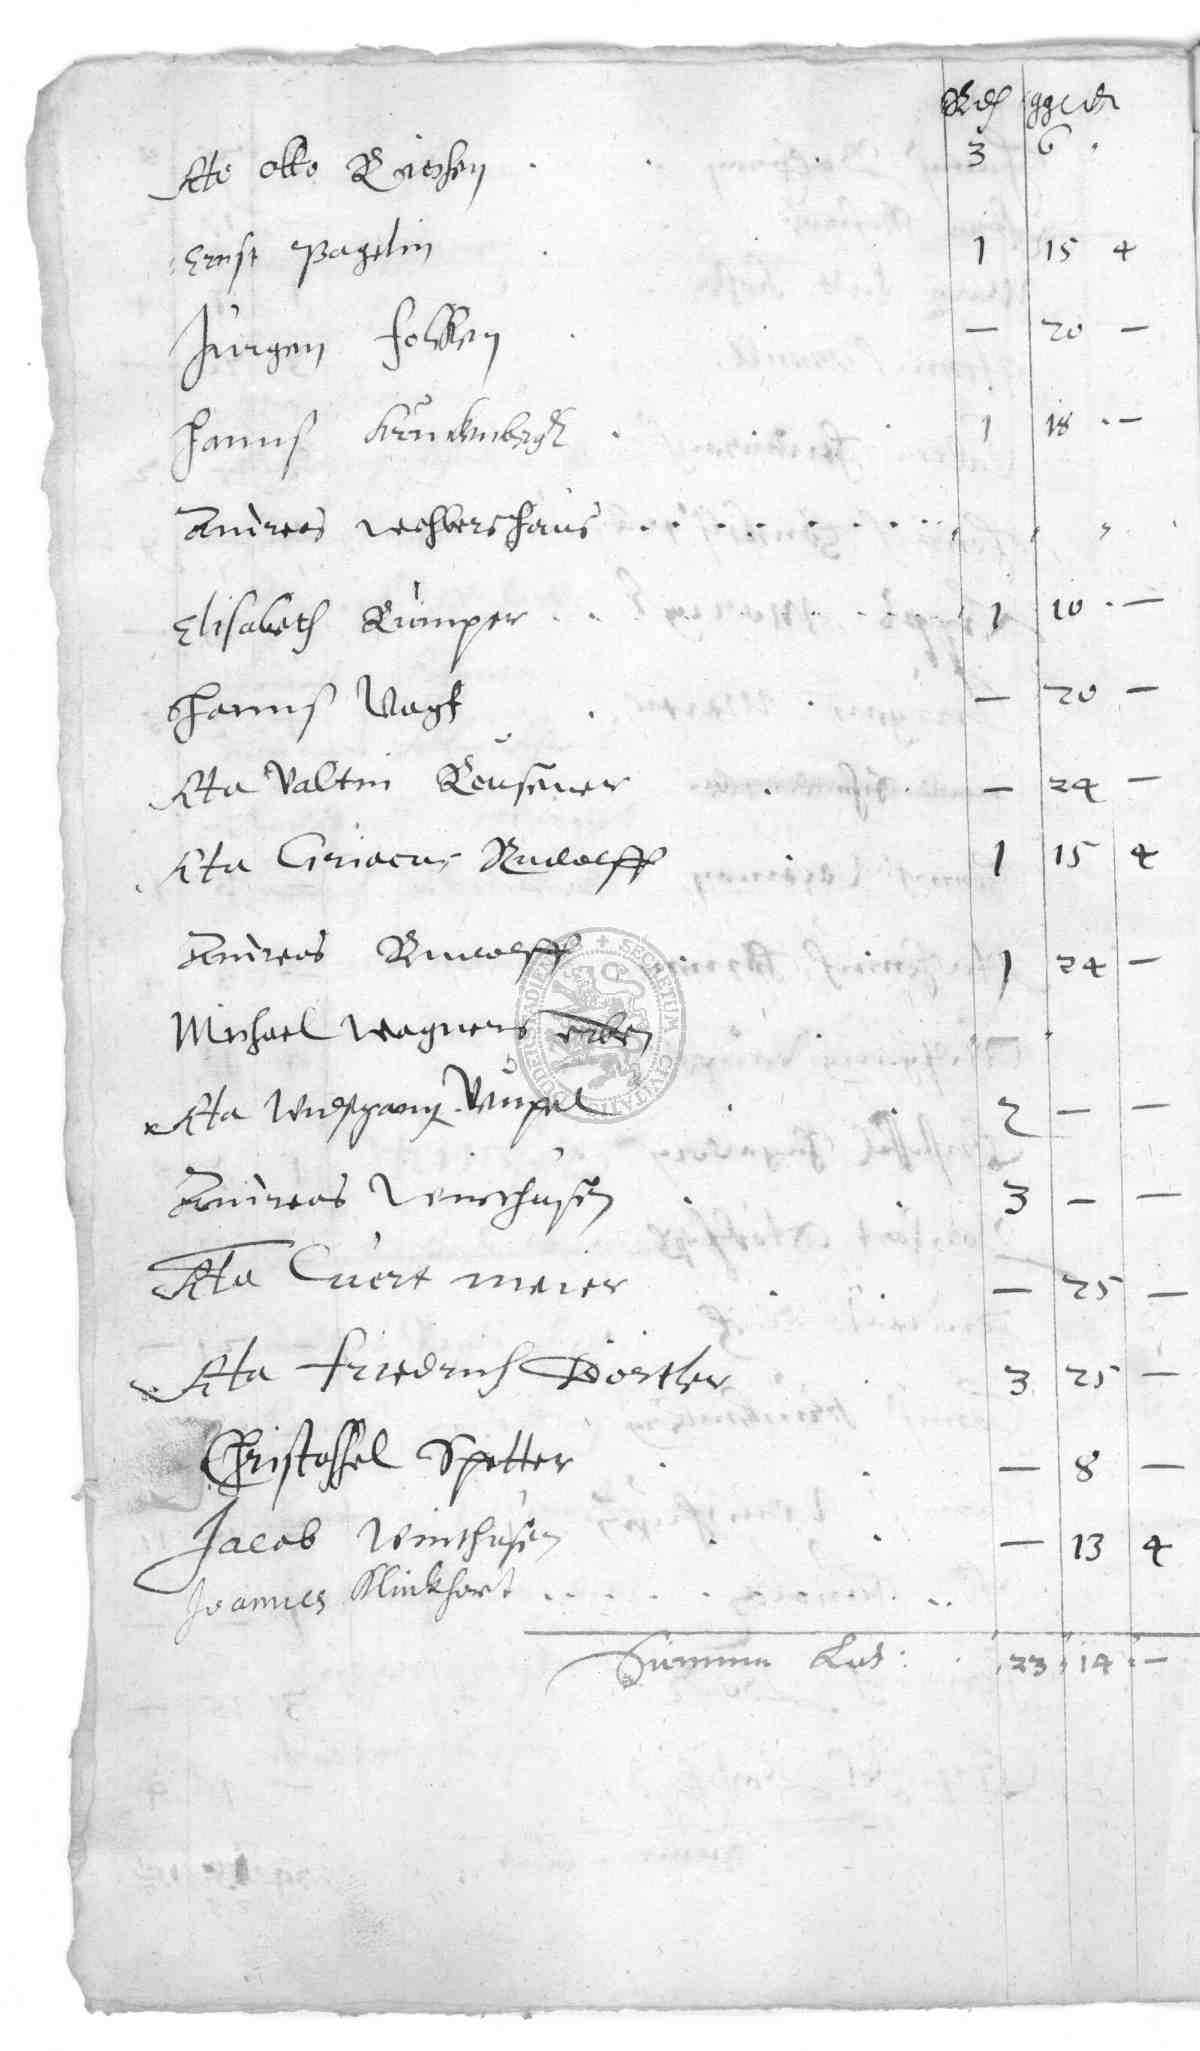 Rth ggr ₰
Ata Otto Riechen 3 6
Ernst Pagelin 1 15 4
Jürgen Folkken — 20 —
Hanns Krückenbergk 1 18 —
Andreas Wehbershaus
Elisabeth Rümper 1 10 —
Hanns Vagt — 20 —
Ata Valtin Reusener — 24 —
Ata Ciriacus Rudolff 1 15 4
Andreas Rudolff 1 24 —
Michael Wagners erben
Ata Wulfgang Vüpel 2 — —
Andreas Winthusen 3 — —
Ata Cuert Meier — 25 —
Ata Friedrich Dörtler 3 25 —
Christoffel Spetter — 8 —
Jacob Winthusen — 13 4
Joannes Klinkhart
Summa Lat: 23 14 —
SECRETUM CIVITATIS